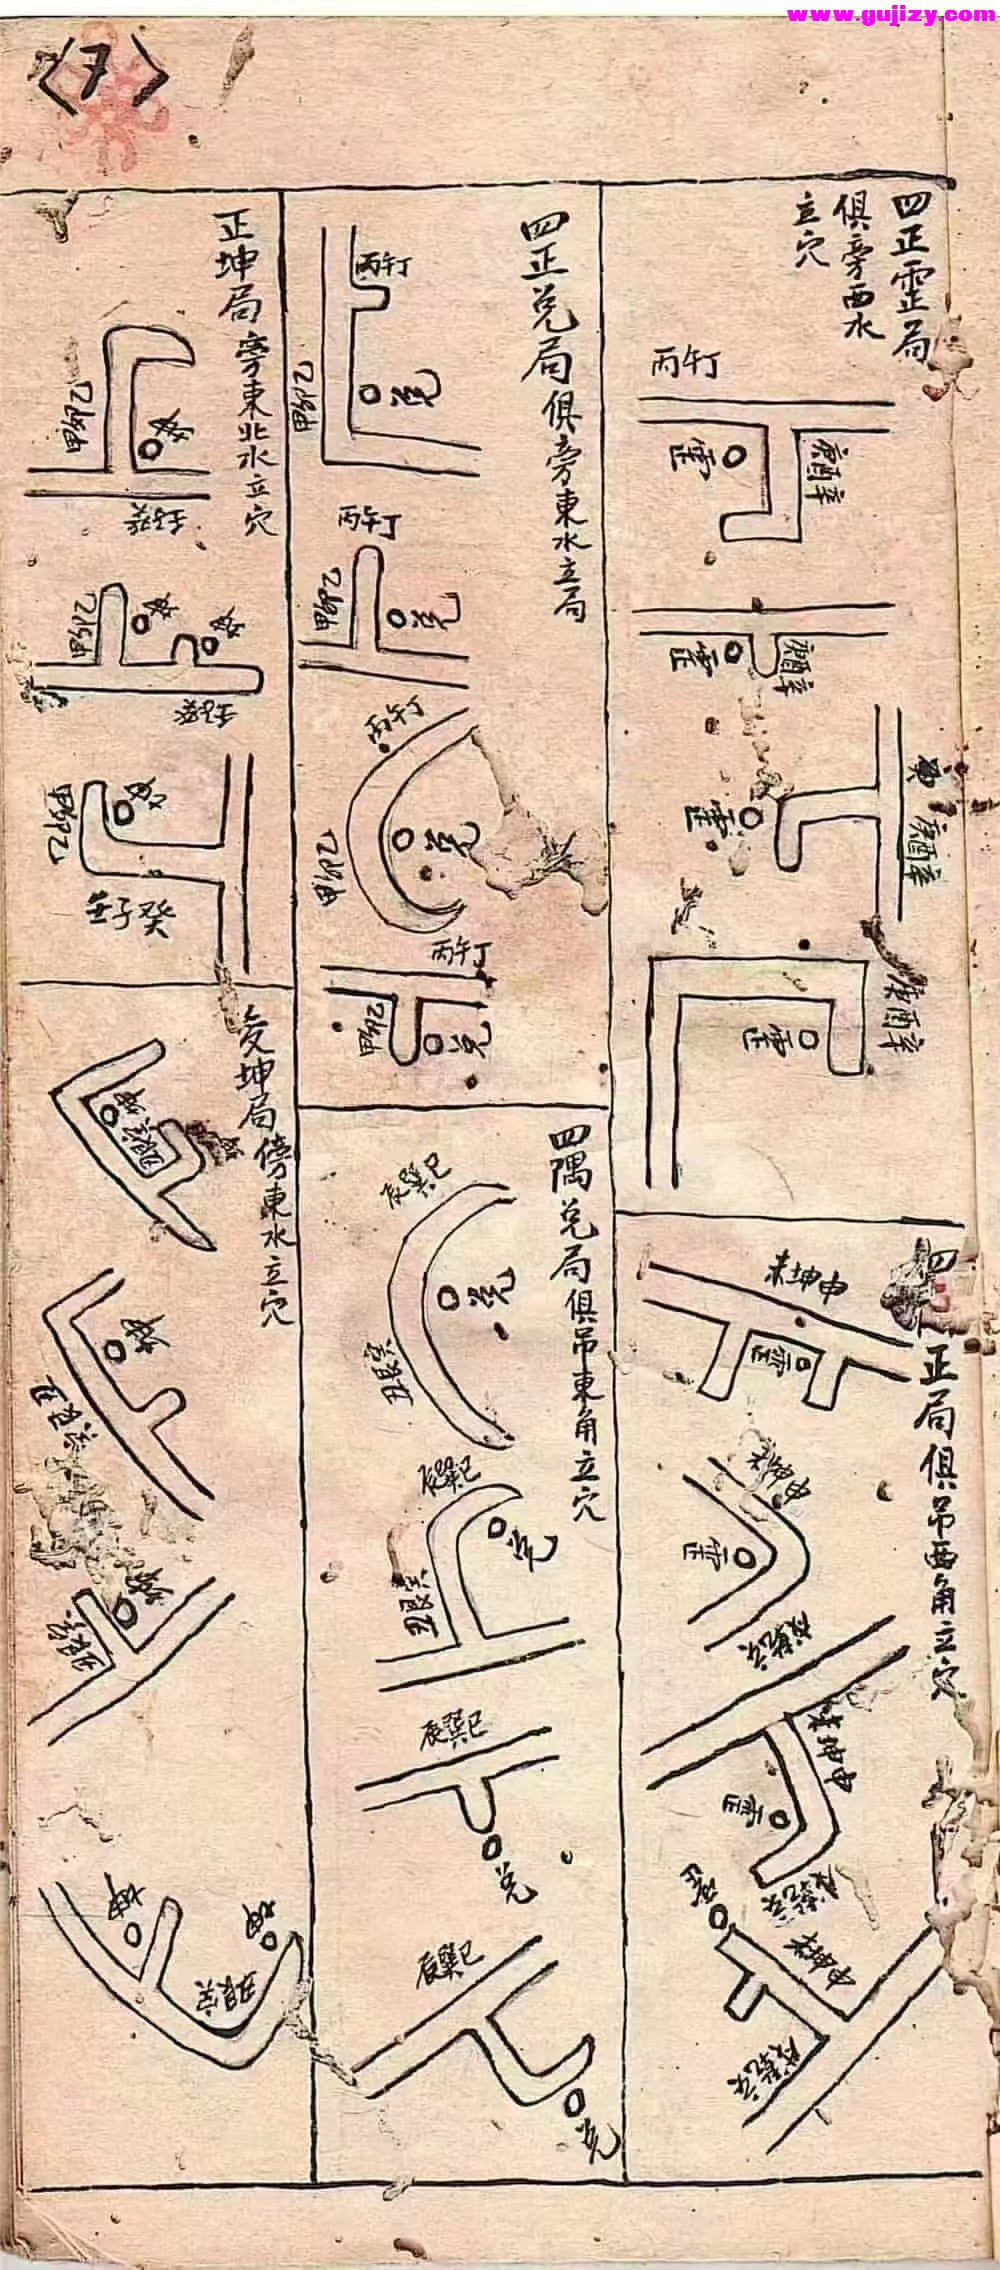 www.gujizy.com
〈7〉
四正霊局
俱旁西水
立穴
丙午丁
霊
庚酉辛
霊
庚酉辛
霊
庚酉辛
霊
庚酉辛
正局俱吊西角立穴
未坤申
霊
未坤申
霊
戌乾亥
未坤申
霊
戌乾亥
霊
未坤申
戌乾亥
四正兑局俱旁東水立局
丙午丁
乙卯甲
兑
丙午丁
乙卯甲
兑
丙午丁
乙卯甲
兑
丙午丁
乙卯甲
兑
四隅兑局俱吊東角立穴
辰巽巳
兑
丑艮寅
辰巽巳
兑
丑艮寅
辰巽巳
兑
辰巽巳
兑
正坤局旁東北水立穴
乙卯甲
坤
壬子癸
乙卯甲
坤
坤
壬子癸
甲卯乙
坤
壬子癸
坤局傍東水立穴
坤
丑艮寅
坤
丑艮寅
坤
丑艮寅
坤
坤
丑艮寅